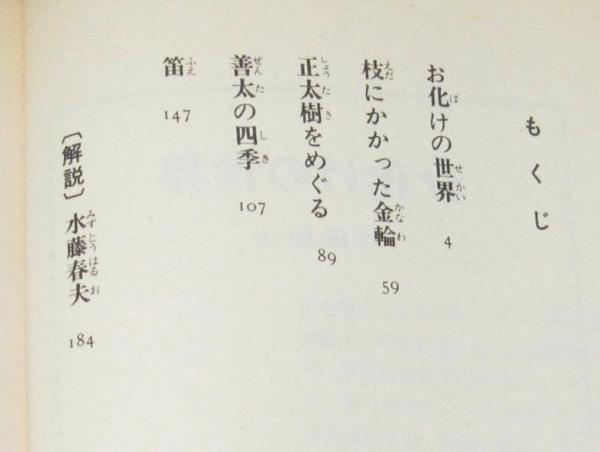 もくじ
お化けの世界 4
枝にかかった金輪 59
正太樹をめぐる 89
善太の四季 107
笛 147
〔解説〕水藤春夫 184